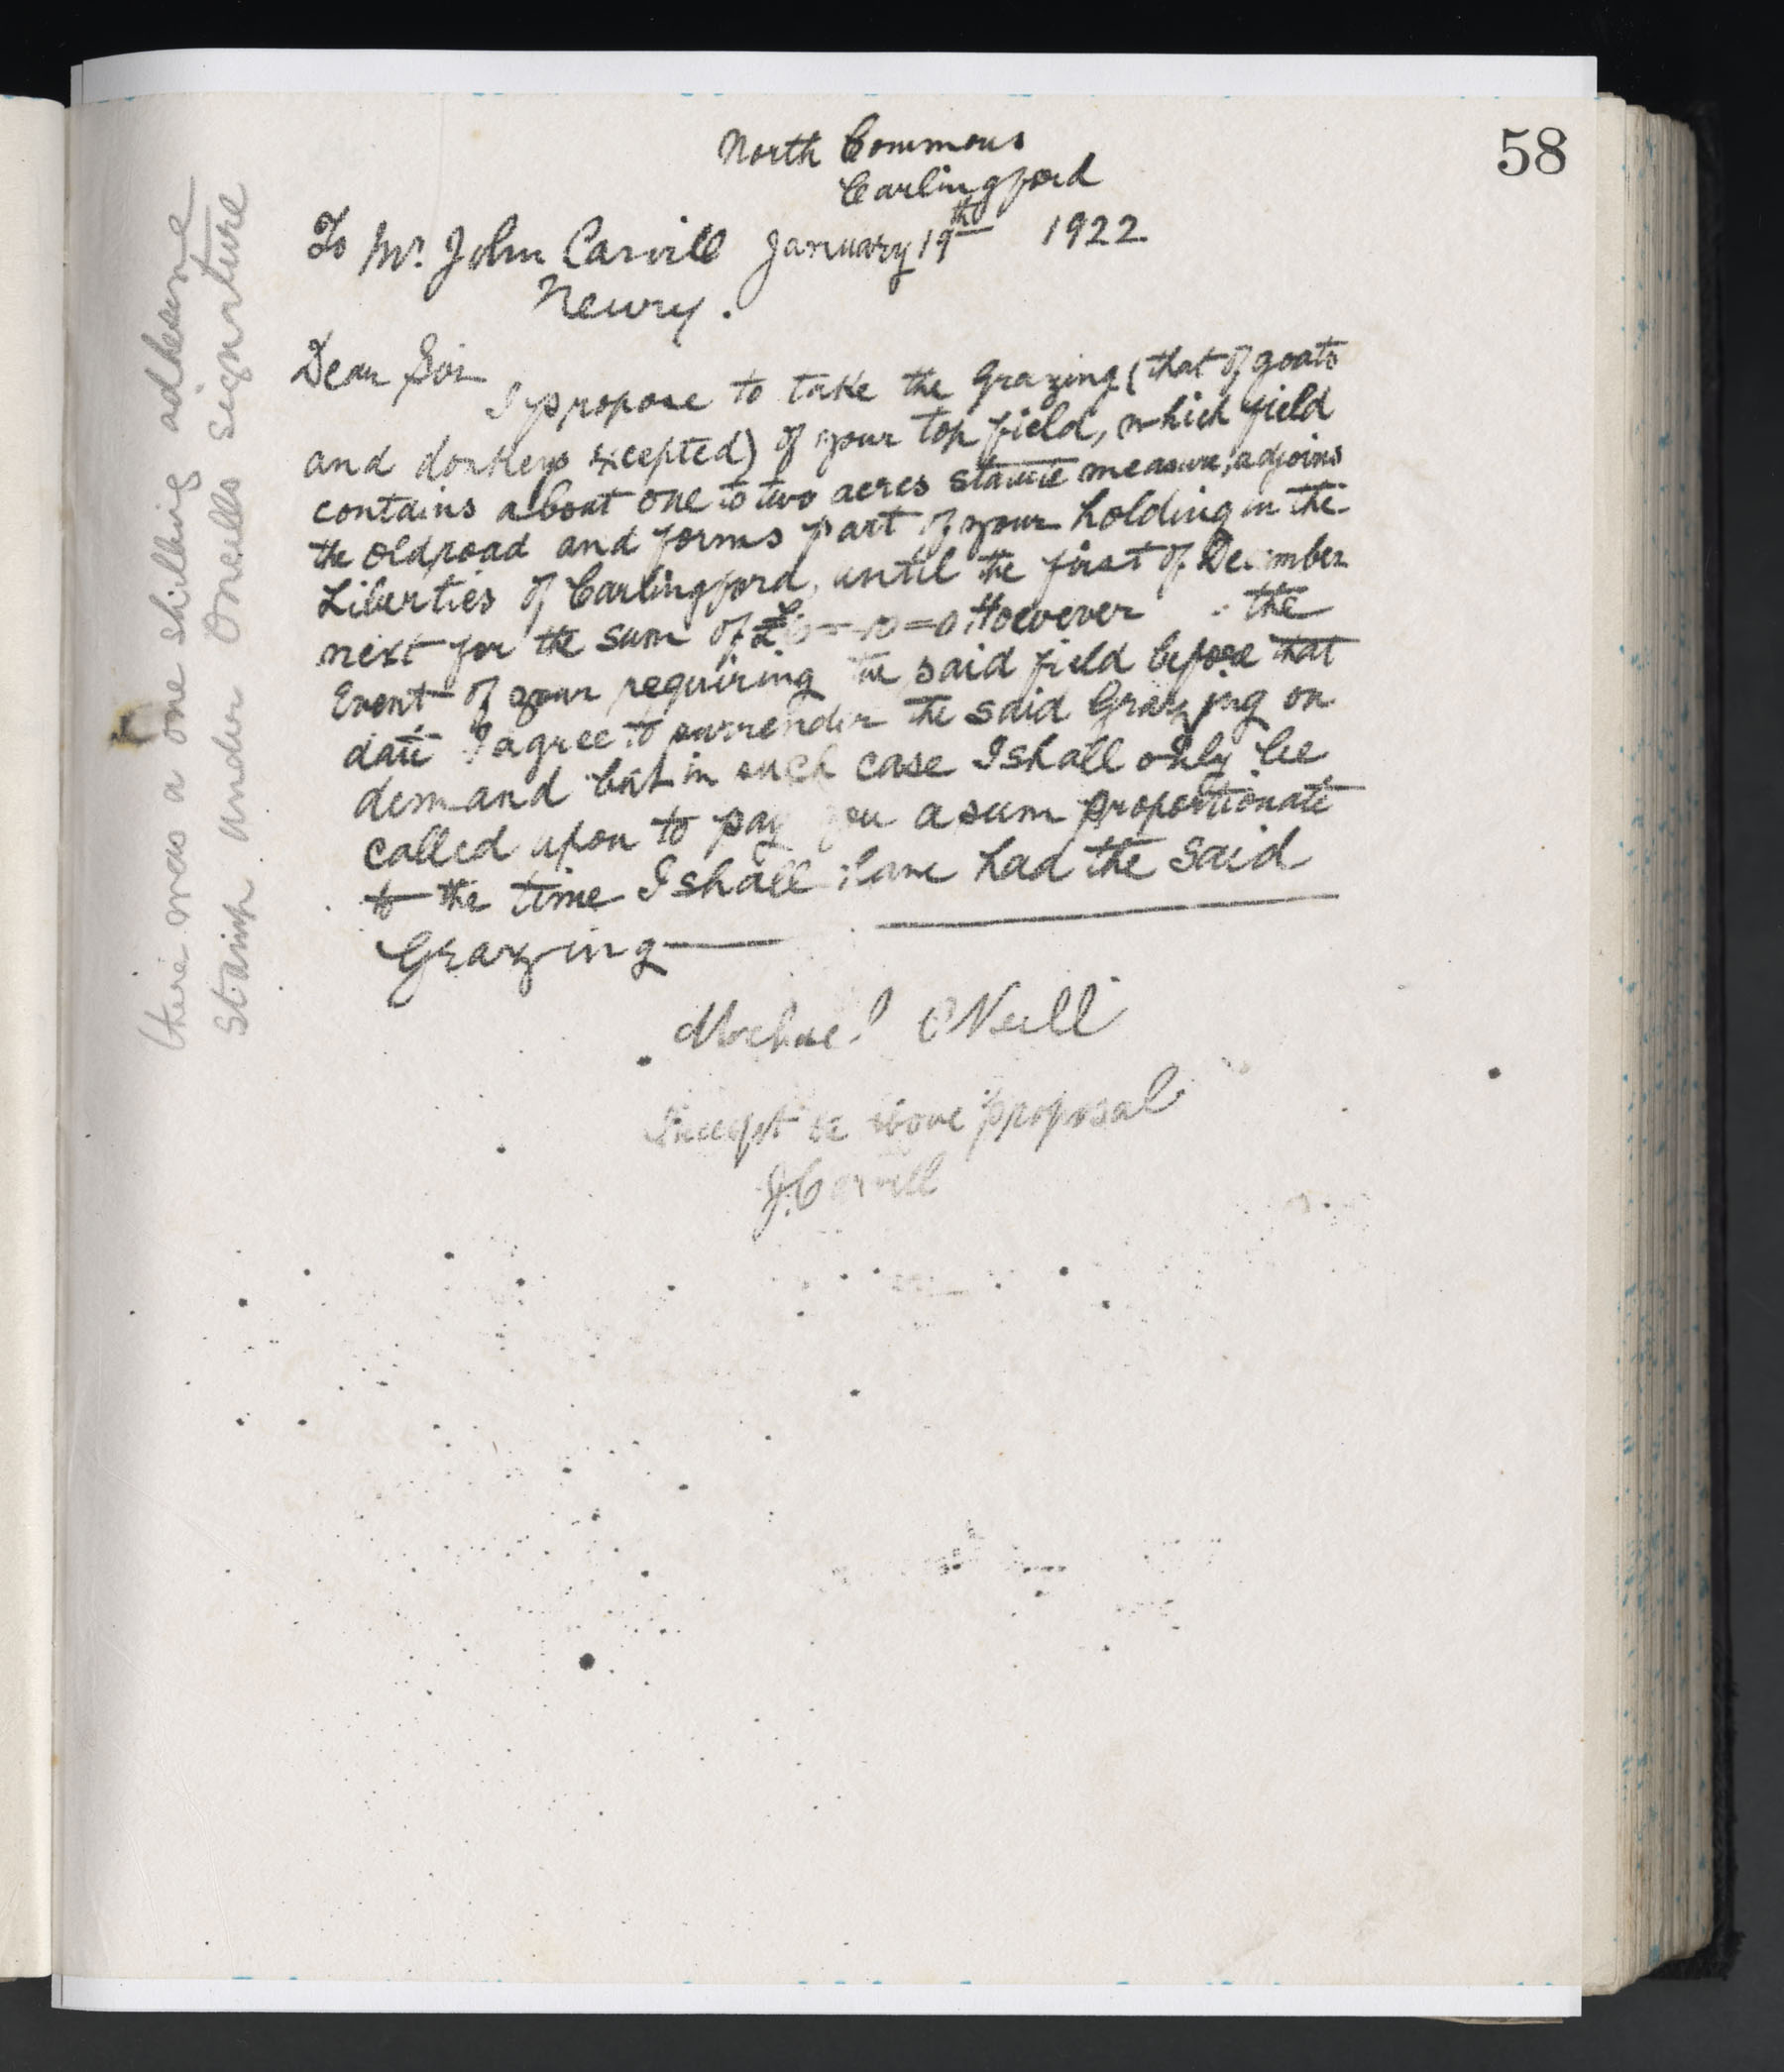 58
North Commons
Carlingford
To Mr. John Carvill January 19th 1922
Newry.
Dear Sir
I propose to take the Grazing (that of goats
and donkeys excepted) of your top field, which field
contains about one to two acres statute measure, adjoins
the old road and forms part of your holding in the
Liberties of Carlingford, until the first of December
next for the sum of £ However the
Event of your requiring the said field before that
date I agree to surrender the said Grazing on
demand but in such case I shall only be
called upon to pay you a sum proportionate
to the time I shall have had the said
Grazing
Michael O'Neill
above proposal
J. Carvill
there was a one shilling adhesive
stamp under Oneills signature